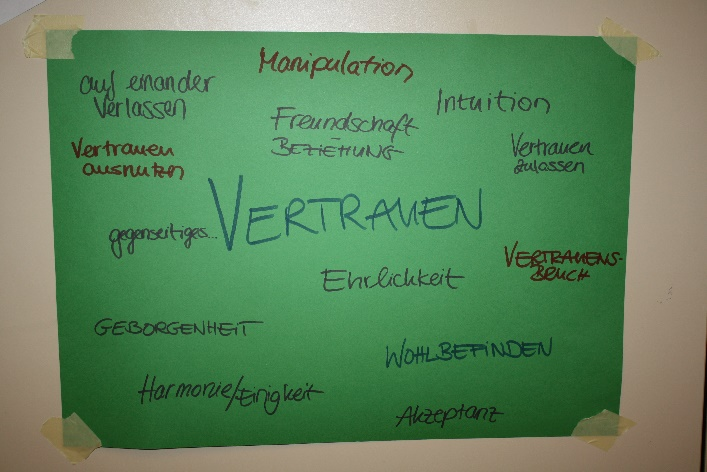 Manipulation
auf einander
verlassen
Intuition
Freundschaft
BEZIEHUNG
Vertrauen
ausnutzen
Vertrauen
zulassen
VERTRAUEN
gegenseitiges...
VERTRAUENS-
BRUCH
Ehrlichkeit
GEBORGENHEIT
WOHLBEFINDEN
Harmonie/Einigkeit
Akzeptanz